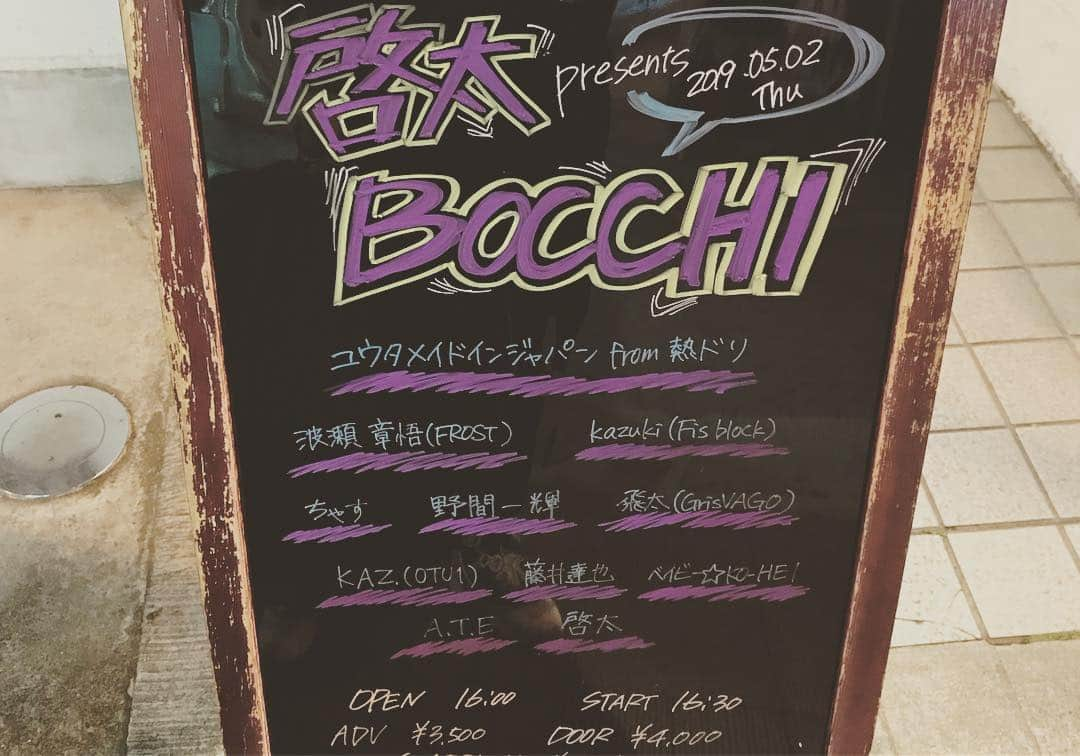 啓太 presents 2019.05.02
Thu
BOCCHI
ユウタメイドインジャパン from 熱ドリ
波瀬 章悟(FROST) kazuki(Fis block)
ちゃす 野間一輝 飛太(GrisVAGO)
KAZ.(OTU1) 藤井達也 ベイビー☆KO-HEI
A.T.E 啓太
OPEN 16:00 START 16:30
ADV ¥3,500 DOOR ¥4,000